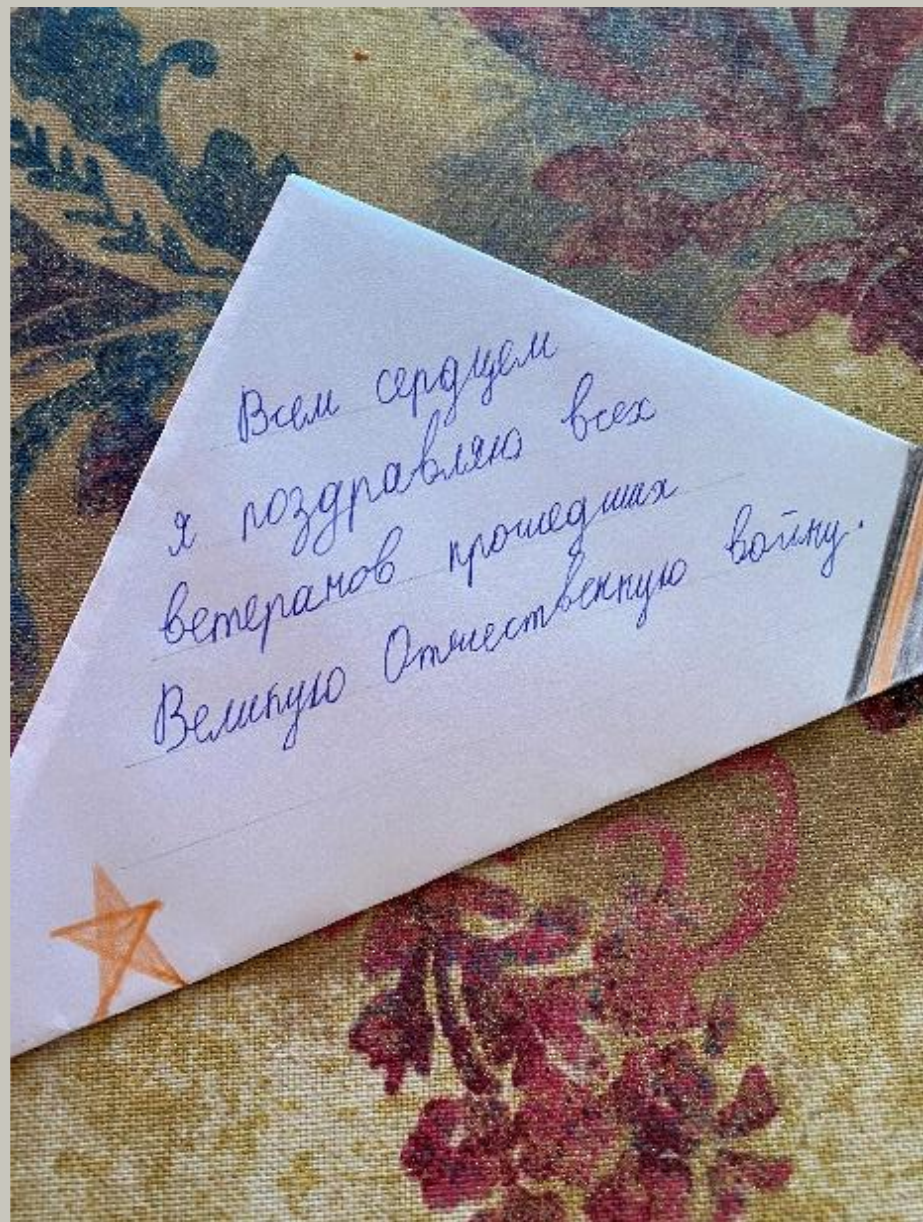 Всем сердцем
я поздравляю всех
ветеранов прошедших
Великую Отечественную войну.